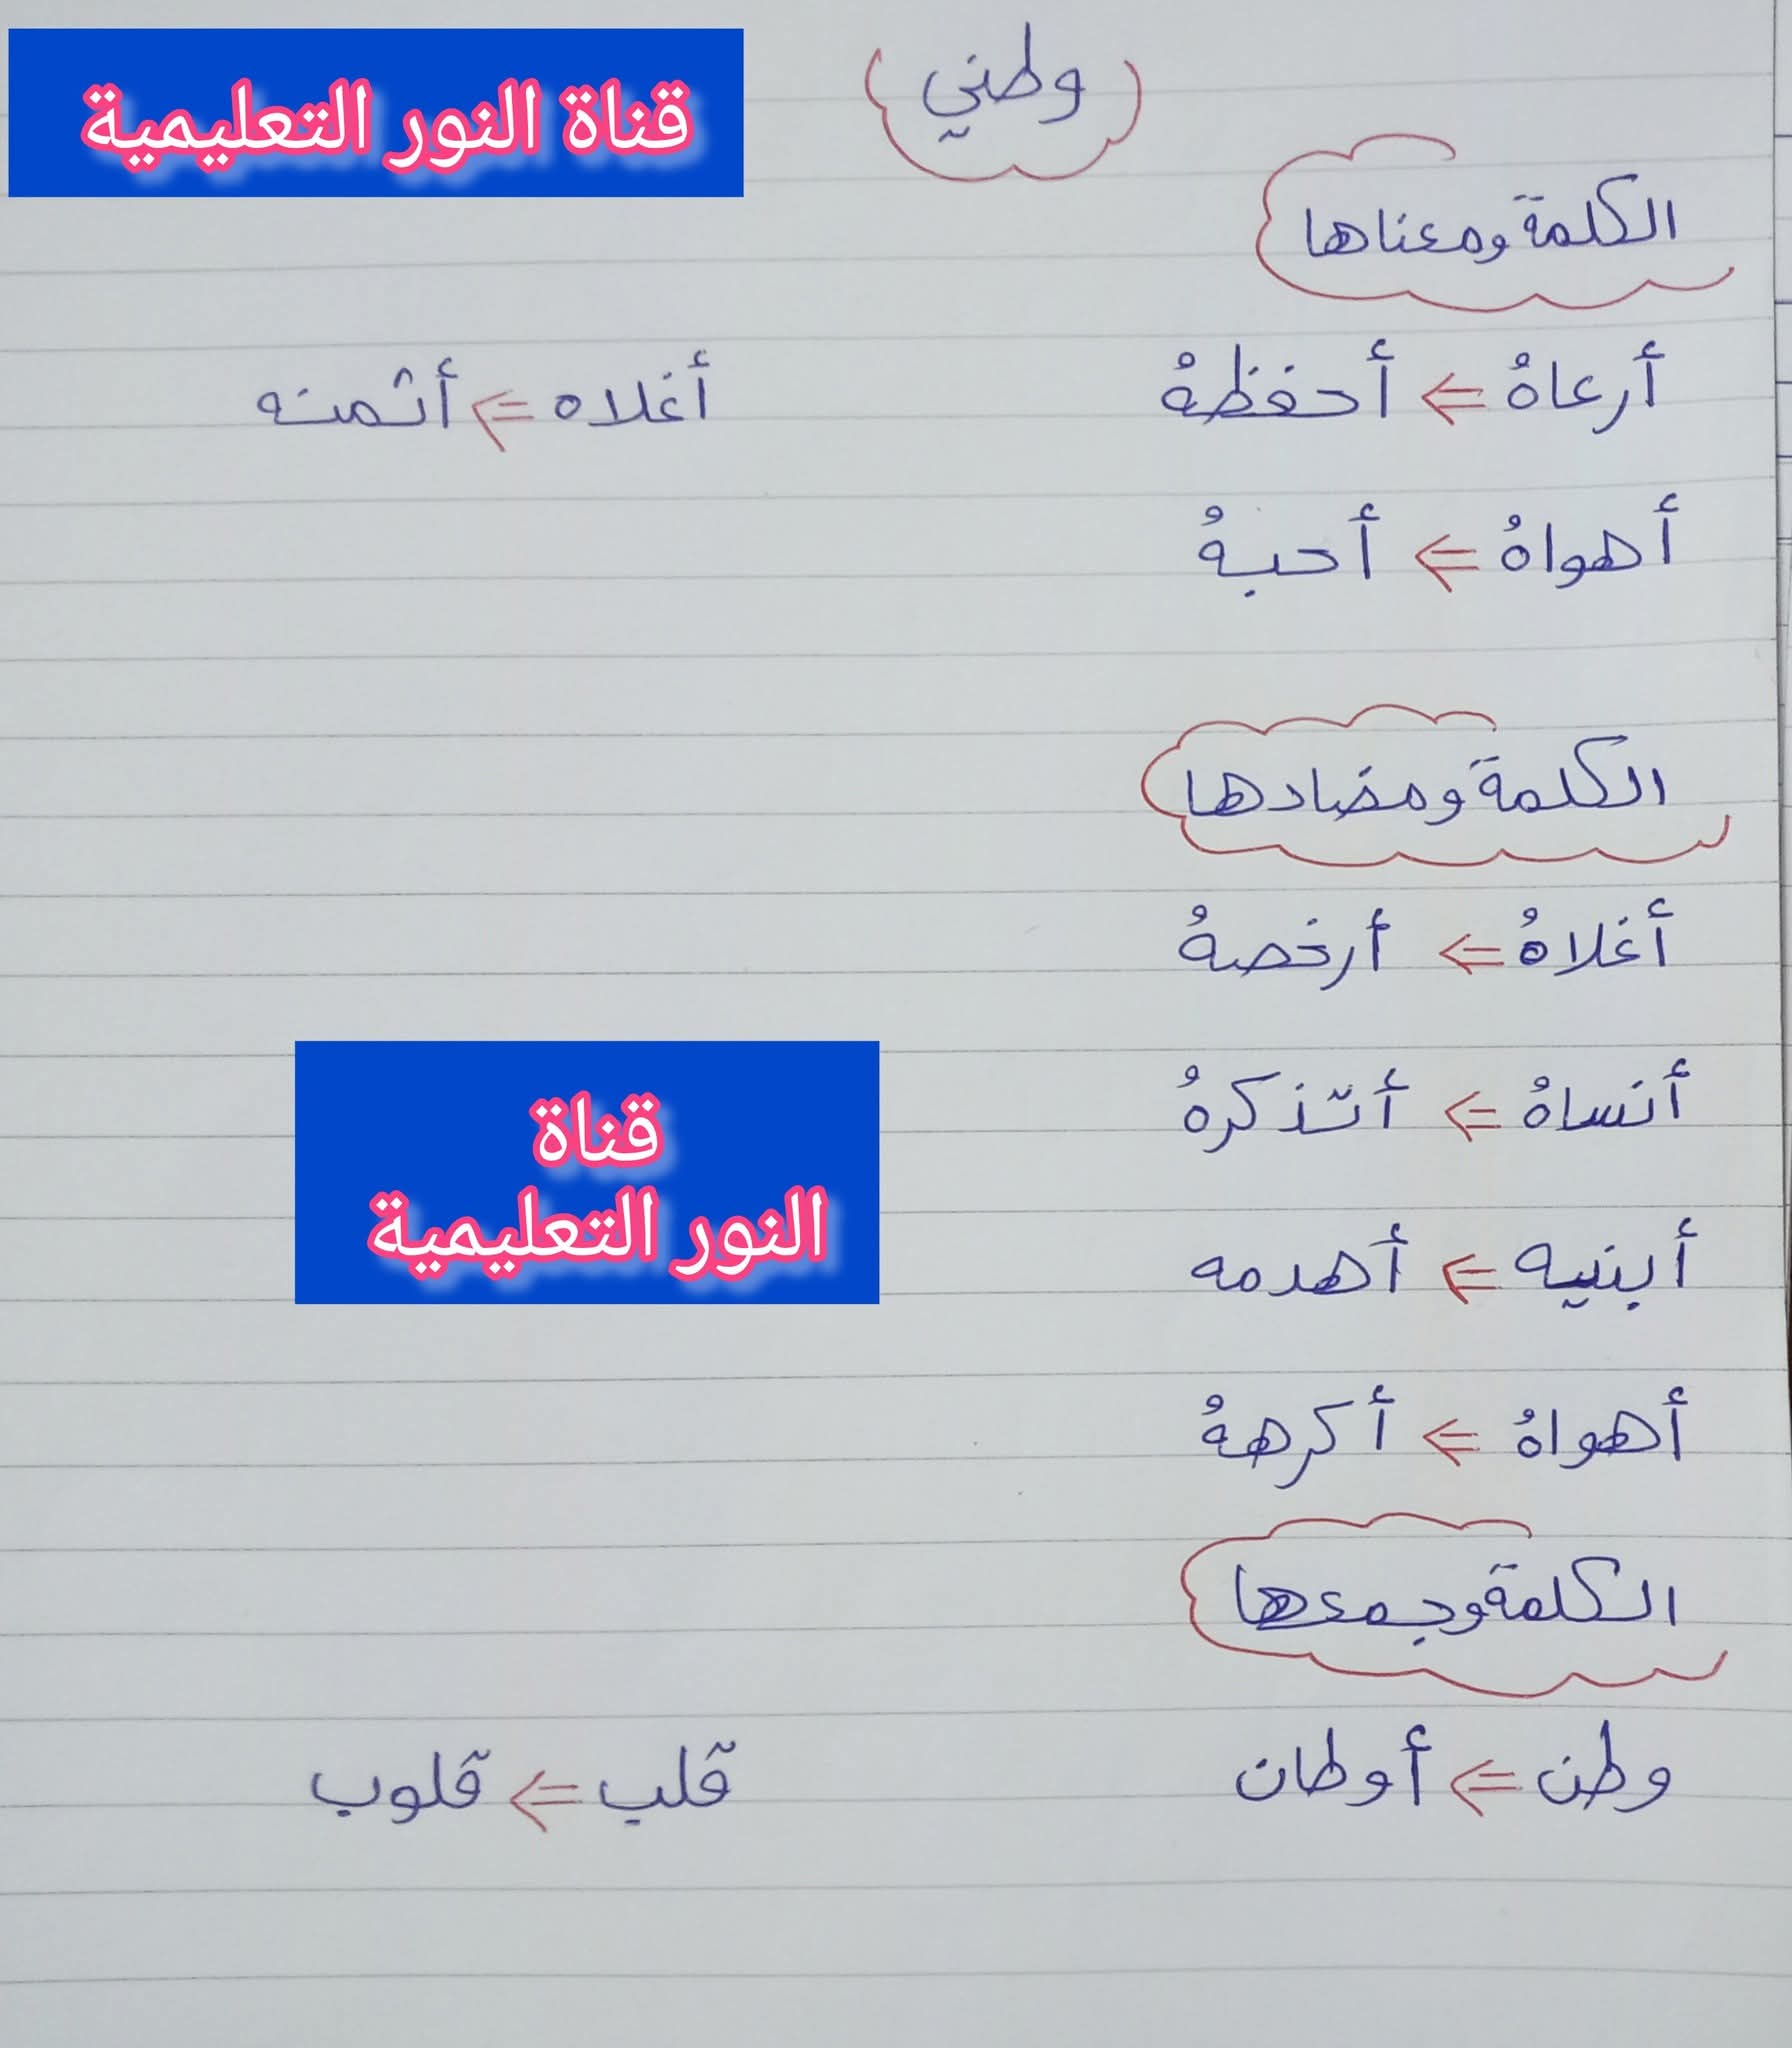 قناة النور التعليمية
وطني
الكلمة ومعناها
أرعاهُ ⇐ أحفظهُ
أغلاه ⇐ أثمنه
أهواهُ ⇐ أحبهُ
الكلمة ومضادها
أغلاهُ ⇐ أرخصهُ
أنساهُ ⇐ أتذكرهُ
قناة
النور التعليمية
أبنيه ⇐ أهدمه
أهواهُ ⇐ أكرههُ
الكلمة وجمعها
وطن ⇐ أوطان
قلب ⇐ قلوب